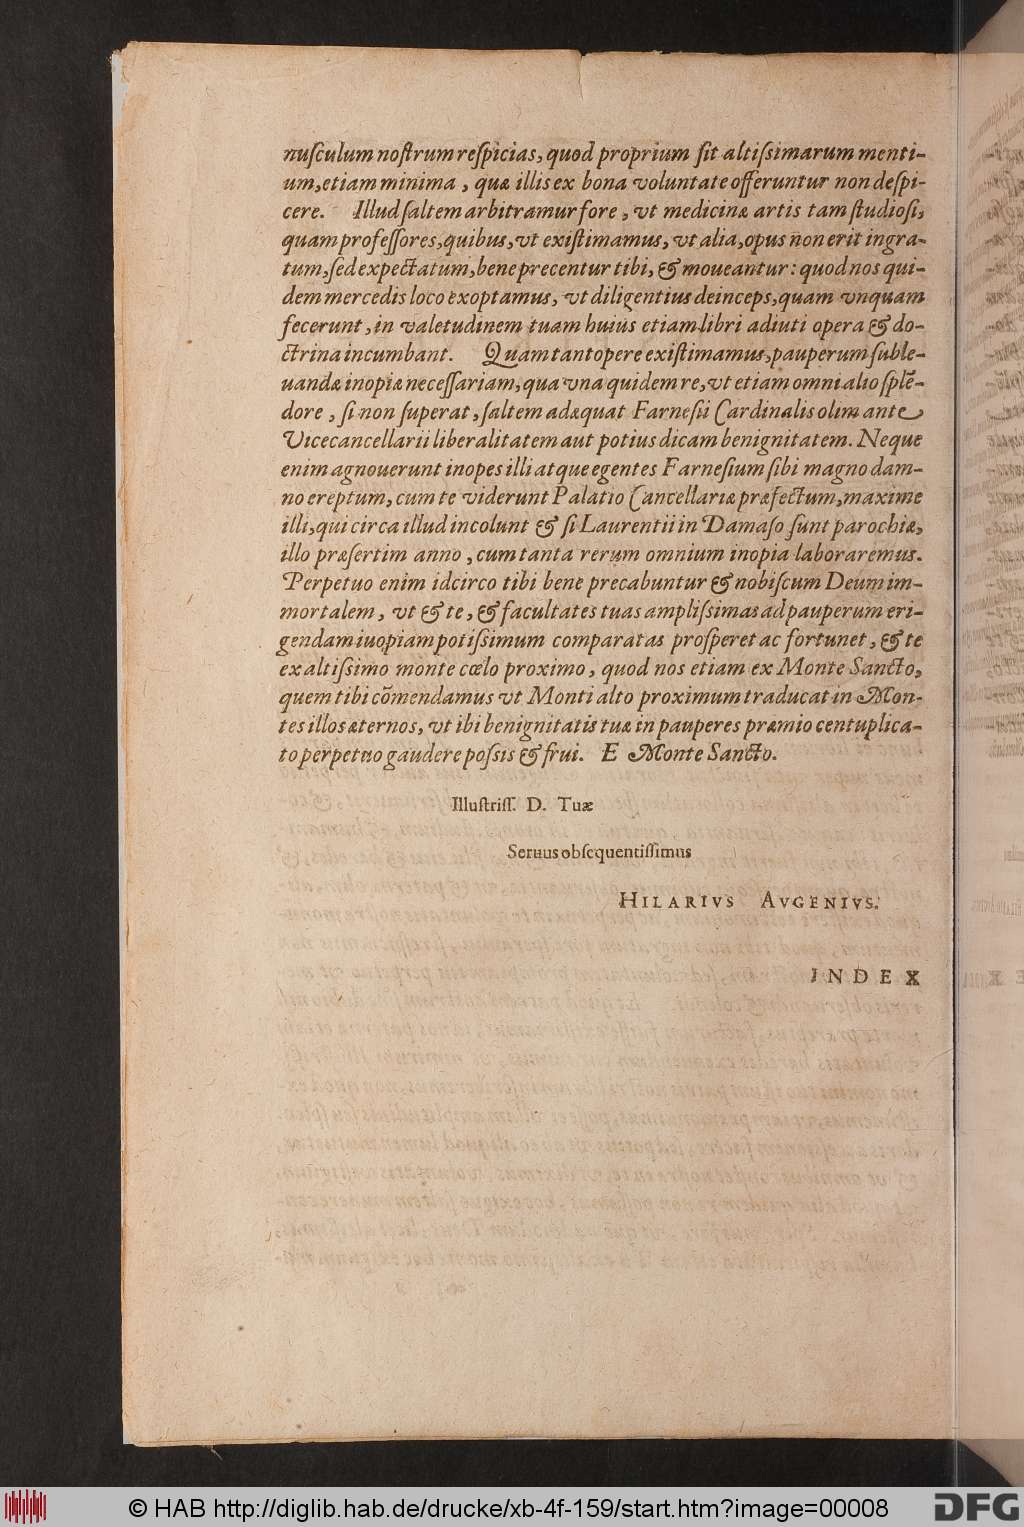 nuſculum noſtrum reſpicias, quod proprium ſit altiſsimarum menti-
um, etiam minima, quæ illis ex bona voluntate offeruntur non deſpi-
cere. Illud ſaltem arbitramur fore, vt medicinæ artis tam ſtudioſi,
quam profeſſores, quibus, vt exiſtimamus, vt alia, opus non erit ingra-
tum, ſed expectatum, bene precentur tibi, & moueantur: quod nos qui-
dem mercedis loco exoptamus, vt diligentius deinceps, quam vnquam
fecerunt, in valetudinem tuam huius etiam libri adiuti opera & do-
ctrina incumbant. Quam tantopere exiſtimamus, pauperum ſuble-
uandæ inopiæ neceſſariam, qua vna quidem re, vt etiam omni alio ſplē-
dore, ſi non ſuperat, ſaltem adæquat Farneſii Cardinalis olim ante
Vicecancellarii liberalitatem aut potius dicam benignitatem. Neque
enim agnouerunt inopes illi atque egentes Farneſium ſibi magno dam-
no ereptum, cum te viderunt Palatio Cancellariæ præfectum, maxime
illi, qui circa illud incolunt & ſi Laurentii in Damaſo ſunt parochiæ,
illo præſertim anno, cum tanta rerum omnium inopia laboraremus.
Perpetuo enim idcirco tibi bene precabuntur & nobiſcum Deum im-
mortalem, vt & te, & facultates tuas ampliſsimas ad pauperum eri-
gendam iuopiam potiſsimum comparatas proſperet ac fortunet, & te
ex altiſsimo monte cœlo proximo, quod nos etiam ex Monte Sancto,
quem tibi cōmendamus vt Monti alto proximum traducat in Mon-
tes illos æternos, vt ibi benignitatis tuæ in pauperes præmio centuplica-
to perpetuo gaudere poſsis & frui. E Monte Sancto.
Illuſtriſſ. D. Tuæ
Seruus obſequentiſſimus
HILARIVS AVGENIVS.
INDEX
© HAB http://diglib.hab.de/drucke/xb-4f-159/start.htm?image=00008
DFG